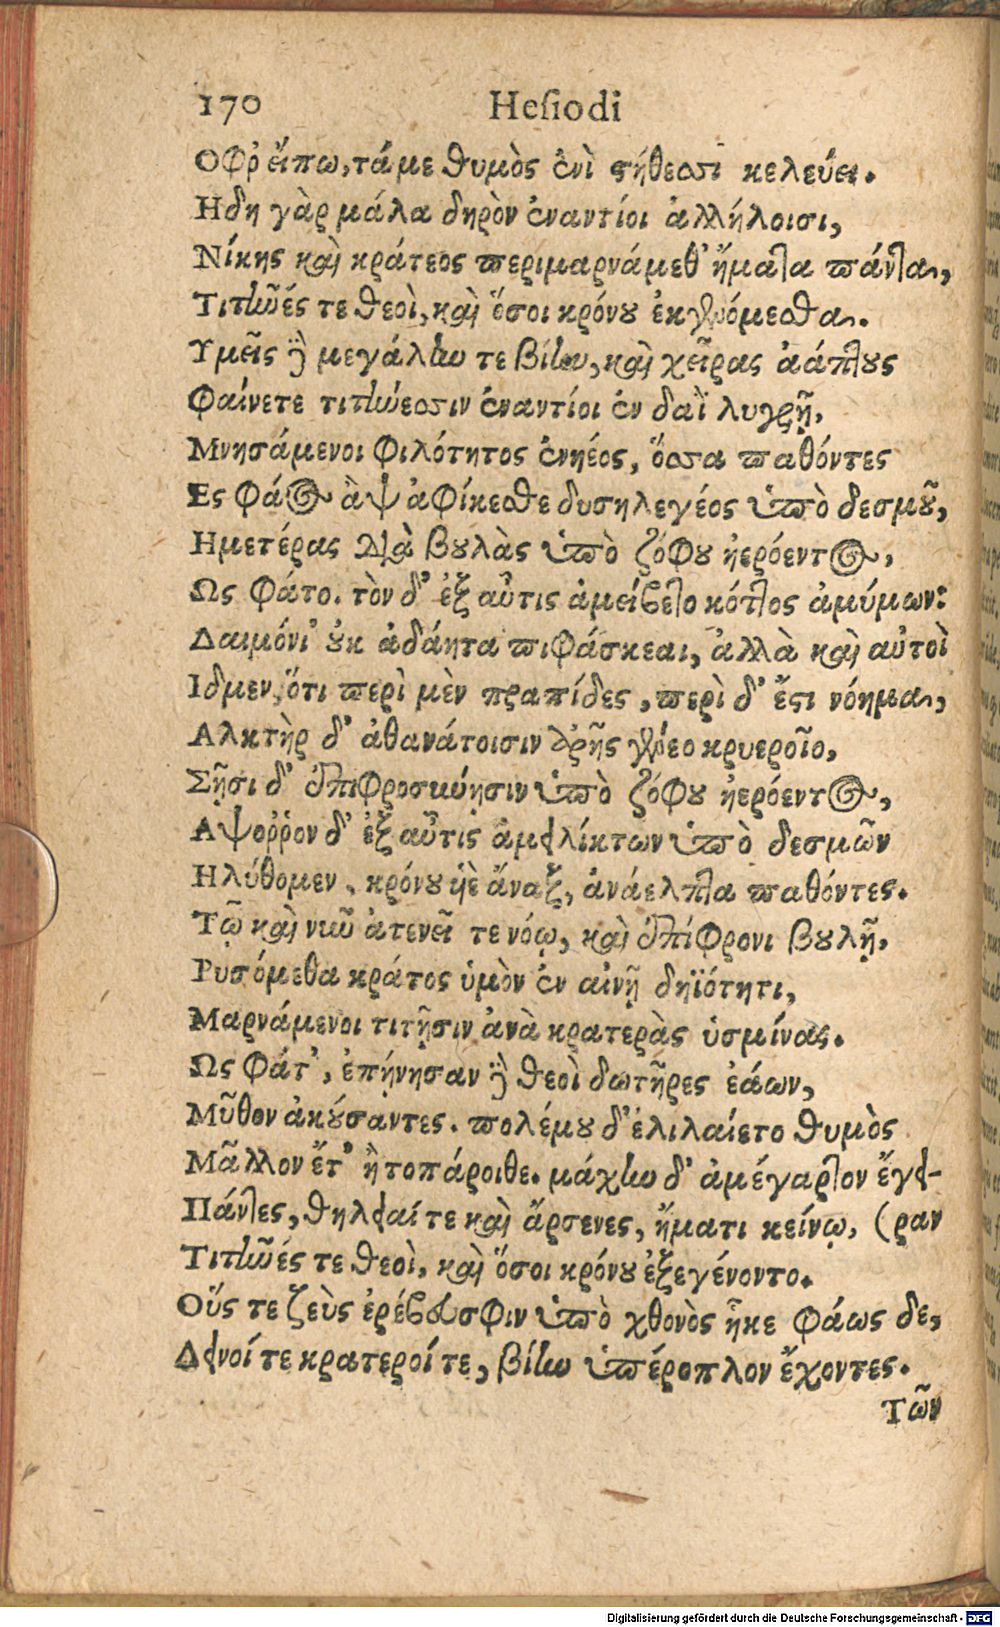 170 Hesiodi
Οφρ' εἴπω, τά με θυμὸς ἐνὶ στήθεσσι κελεύει.
Ηδη γὰρ μάλα δηρὸν ἐναντίοι ἀλλήλοισι,
Νίκης καὶ κράτεος περιμαρνάμεθ' ἤματα πάντα,
Τιτῆνές τε θεοὶ, καὶ ὅσοι κρόνου ἐκγενόμεσθα.
Υμεῖς δὲ μεγάλην τε βίην, καὶ χεῖρας ἀάπτους
Φαίνετε τιτήνεσσιν ἐναντίοι ἐν δαῒ λυγρῇ,
Μνησάμενοι φιλότητος ἐνηέος, ὅσσα παθόντες
Ες φάος ἂψ ἀφίκεσθε δυσηλεγέος ὑπὸ δεσμοῦ,
Ημετέρας διὰ βουλὰς ὑπὸ ζόφου ἠερόεντος,
Ως φάτο. τὸν δ' ἐξ αὖτις ἀμείβετο κόττος ἀμύμων:
Δαιμόνι' οὐκ ἀδάητα πιφάσκεαι, ἀλλὰ καὶ αὐτοὶ
Ιδμεν, ὅτι περὶ μὲν πραπίδες, περὶ δ' ἔστι νόημα,
Αλκτὴρ δ' ἀθανάτοισιν ἀρῆς γένεο κρυεροῖο,
Σῇσι δ' ἐπιφροσύνησιν ὑπὸ ζόφου ἠερόεντος,
Αψοῤῥον δ' ἐξ αὖτις ἀμειλίκτων ὑπὸ δεσμῶν
Ηλύθομεν, κρόνου ὑὲ ἄναξ, ἀνάελπτα παθόντες.
Τῷ καὶ νῦν ἀτενεῖ τε νόῳ, καὶ ἐπίφρονι βουλῇ,
Ρυσόμεθα κράτος ὑμὸν ἐν αἰνῇ δηϊότητι,
Μαρνάμενοι τιτῆσιν ἀνὰ κρατερὰς ὑσμίνας.
Ως φάτ', ἐπήνησαν δὲ θεοὶ δωτῆρες ἐάων,
Μῦθον ἀκούσαντες. πολέμου δ' ἐλιλαίετο θυμὸς
Μᾶλλον ἔτ' ἢ τοπάροιθε. μάχην δ' ἀμέγαρτον ἔγει-
Πάντες, θηλειαί τε καὶ ἄρσενες, ἤματι κείνῳ, (ραν
Τιτῆνές τε θεοὶ, καὶ ὅσοι κρόνου ἐξεγένοντο.
Οὕς τε ζεὺς ἐρέβευσφιν ὑπὸ χθονὸς ἧκε φάως δε,
Δεινοί τε κρατεροί τε, βίην ὑπέροπλον ἔχοντες.
Τῶν
Digitalisierung gefördert durch die Deutsche Forschungsgemeinschaft - DFG